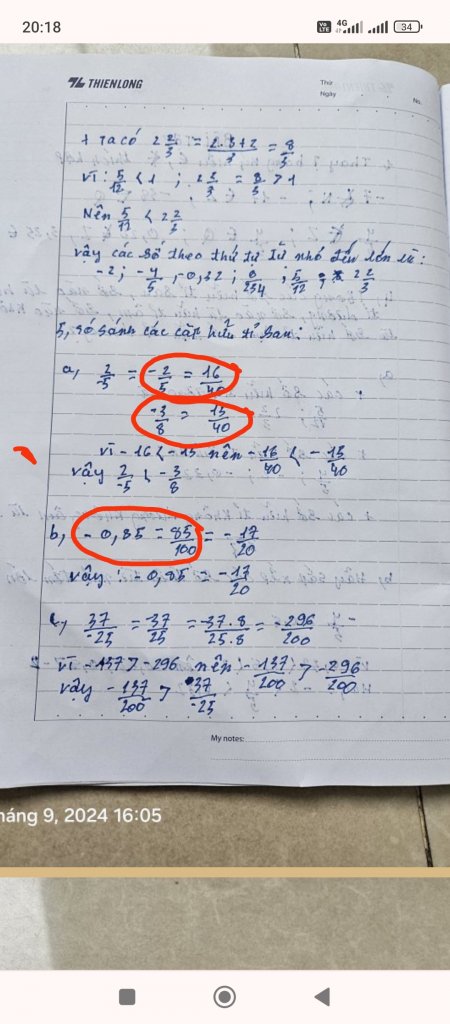 20:18
Vo LTE 4G 34
THIENLONG
Thứ
Ngày
No.
+ Ta có 2 2/3 = 2.3+2/3 = 8/3
Vì: 5/12 < 1 ; 2 2/3 = 8/3 > 1
Nên 5/12 < 2 2/3
vậy các số theo thứ tự từ nhỏ đến lớn là:
-2; -4/5; -0,32; 0/234; 5/12; 2 2/3
5, so sánh các cặp hữu tỉ sau:
a, 2/-5 = -2/5 = 16/40
-3/8 = 15/40
vì -16 < -15 nên -16/40 < -15/40
vậy 2/-5 < -3/8
b, -0,85 = 85/100 = -17/20
vậy: -0,85 = -17/20
c, 37/-25 = -37/25 = -37.8/25.8 = -296/200
vì -137 > -296 nên -137/200 > -296/200
vậy -137/200 > 37/-25
My notes:
háng 9, 2024 16:05